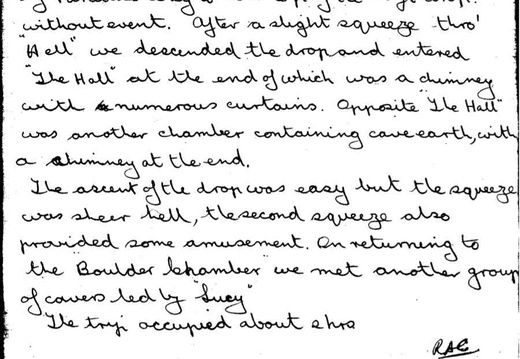 without event. After a slight squeeze thro'
"Hell" we descended the drop and entered
"The Hall" at the end of which was a chimney
with numerous curtains. Opposite "The Hall"
was another chamber containing cave earth, with
a chimney at the end.
The ascent of the drop was easy but the squeeze
was sheer hell, the second squeeze also
provided some amusement. On returning to
the "Boulder Chamber" we met another group
of cavers led by "Sucy"
The trip occupied about 2 hrs